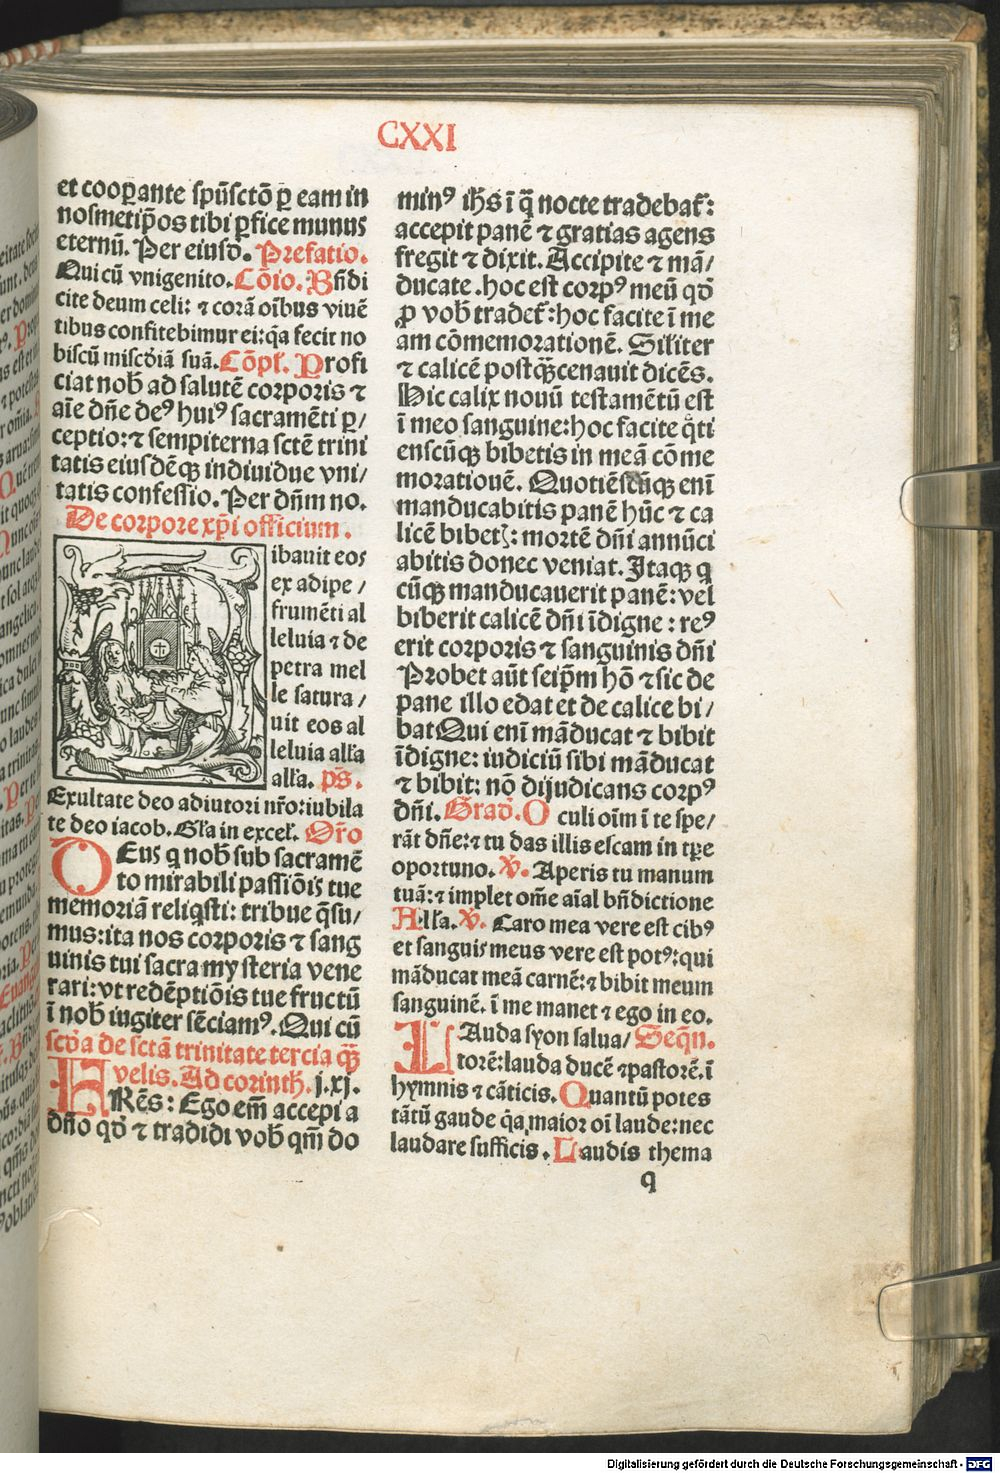 CXXI
et cooꝑante spūsctō ꝑ eam in
nosmetip̄os tibi ꝑfice munus
eternū. Per eiusd̄. Prefatio.
Qui cū vnigenito. Cōio. Bn̄di
cite deum celi: ⁊ corā oībus viuē
tibus confitebimur ei: q̄a fecit no
biscū mīscd̄iā suā. Cōpł. Profi
ciat nob̄ ad salutē corporis ⁊
aīe dn̄e deꝰ huiꝰ sacramēti ꝑ/
ceptio: ⁊ sempiterna sctē trini
tatis eiusdēqꝫ indiuidue vni/
tatis confessio. Per dn̄m no.
De corpore xp̄i officium.
ibauit eos
ex adipe /
frumēti al
leluia ⁊ de
petra mel
le satura /
uit eos al
leluia alľa
alľa. ps̄.
Exultate deo adiutori nr̄o: iubila
te deo iacob. Gľa in exceł. Or̄o
OEus q nob̄ sub sacramē
to mirabili passiōis tue
memoriā reliq̄sti: tribue q̄su/
mus: ita nos corporis ⁊ sang
uinis tui sacra mysteria vene
rari: vt redēptiōis tue fructū
ī nob̄ iugiter sēciamꝰ. Qui cū
scd̄a de sctā trinitate tercia qꝫ̄
velis. Ad corinth̄. j. xj.
FRēs: Ego em̄ accepi a
dn̄o qd̄ ⁊ tradidi vob̄ qm̄ do
minꝰ ih̄s ī q̄ nocte tradebat̄:
accepit panē ⁊ gratias agens
fregit ⁊ dixit. Accipite ⁊ mā/
ducate. hoc est corpꝰ meū qd̄
ꝓ vob̄ tradet̄: hoc facite ī me
am cōmemorationē. Siliter
⁊ calicē postqꝫ̄ cenauit dicēs.
Hic calix nouū testamētū est
ī meo sanguine: hoc facite q̊ti
enscūqꝫ bibetis in meā cōme
morationē. Quotiēscūqꝫ enī
manducabitis panē hūc ⁊ ca
licē bibetꝭ: mortē dn̄i annūci
abitis donec veniat. Itaqꝫ q
cūqꝫ manducauerit panē: vel
biberit calicē dn̄i īdigne: reꝰ
erit corporis ⁊ sanguinis dn̄i
Probet aūt seip̄m hō ⁊ sic de
pane illo edat et de calice bi/
bat Qui enī māducat ⁊ bibit
īdigne: iudiciū sibi māducat
⁊ bibit: nō dijudicans corpꝰ
dn̄i. Grad̄. Oculi oīm ī te spe/
rāt dn̄e: ⁊ tu das illis escam in tp̄e
oportuno. V̄. Aperis tu manum
tuā: ⁊ implet om̄e aīal bn̄dictione
Alľa. V̄. Caro mea vere est cibꝰ
et sanguis meus vere est potꝰ: qui
māducat meā carnē: ⁊ bibit meum
sanguinē. ī me manet ⁊ ego in eo.
LAuda syon salua/ Seqn̄.
torē: lauda ducē ⁊ pastorē. ī
hymnis ⁊ cāticis. Quantū potes
tātū gaude q̄a maior oī laude: nec
laudare sufficis. Laudis thema
q
Digitalisierung gefördert durch die Deutsche Forschungsgemeinschaft - DFG